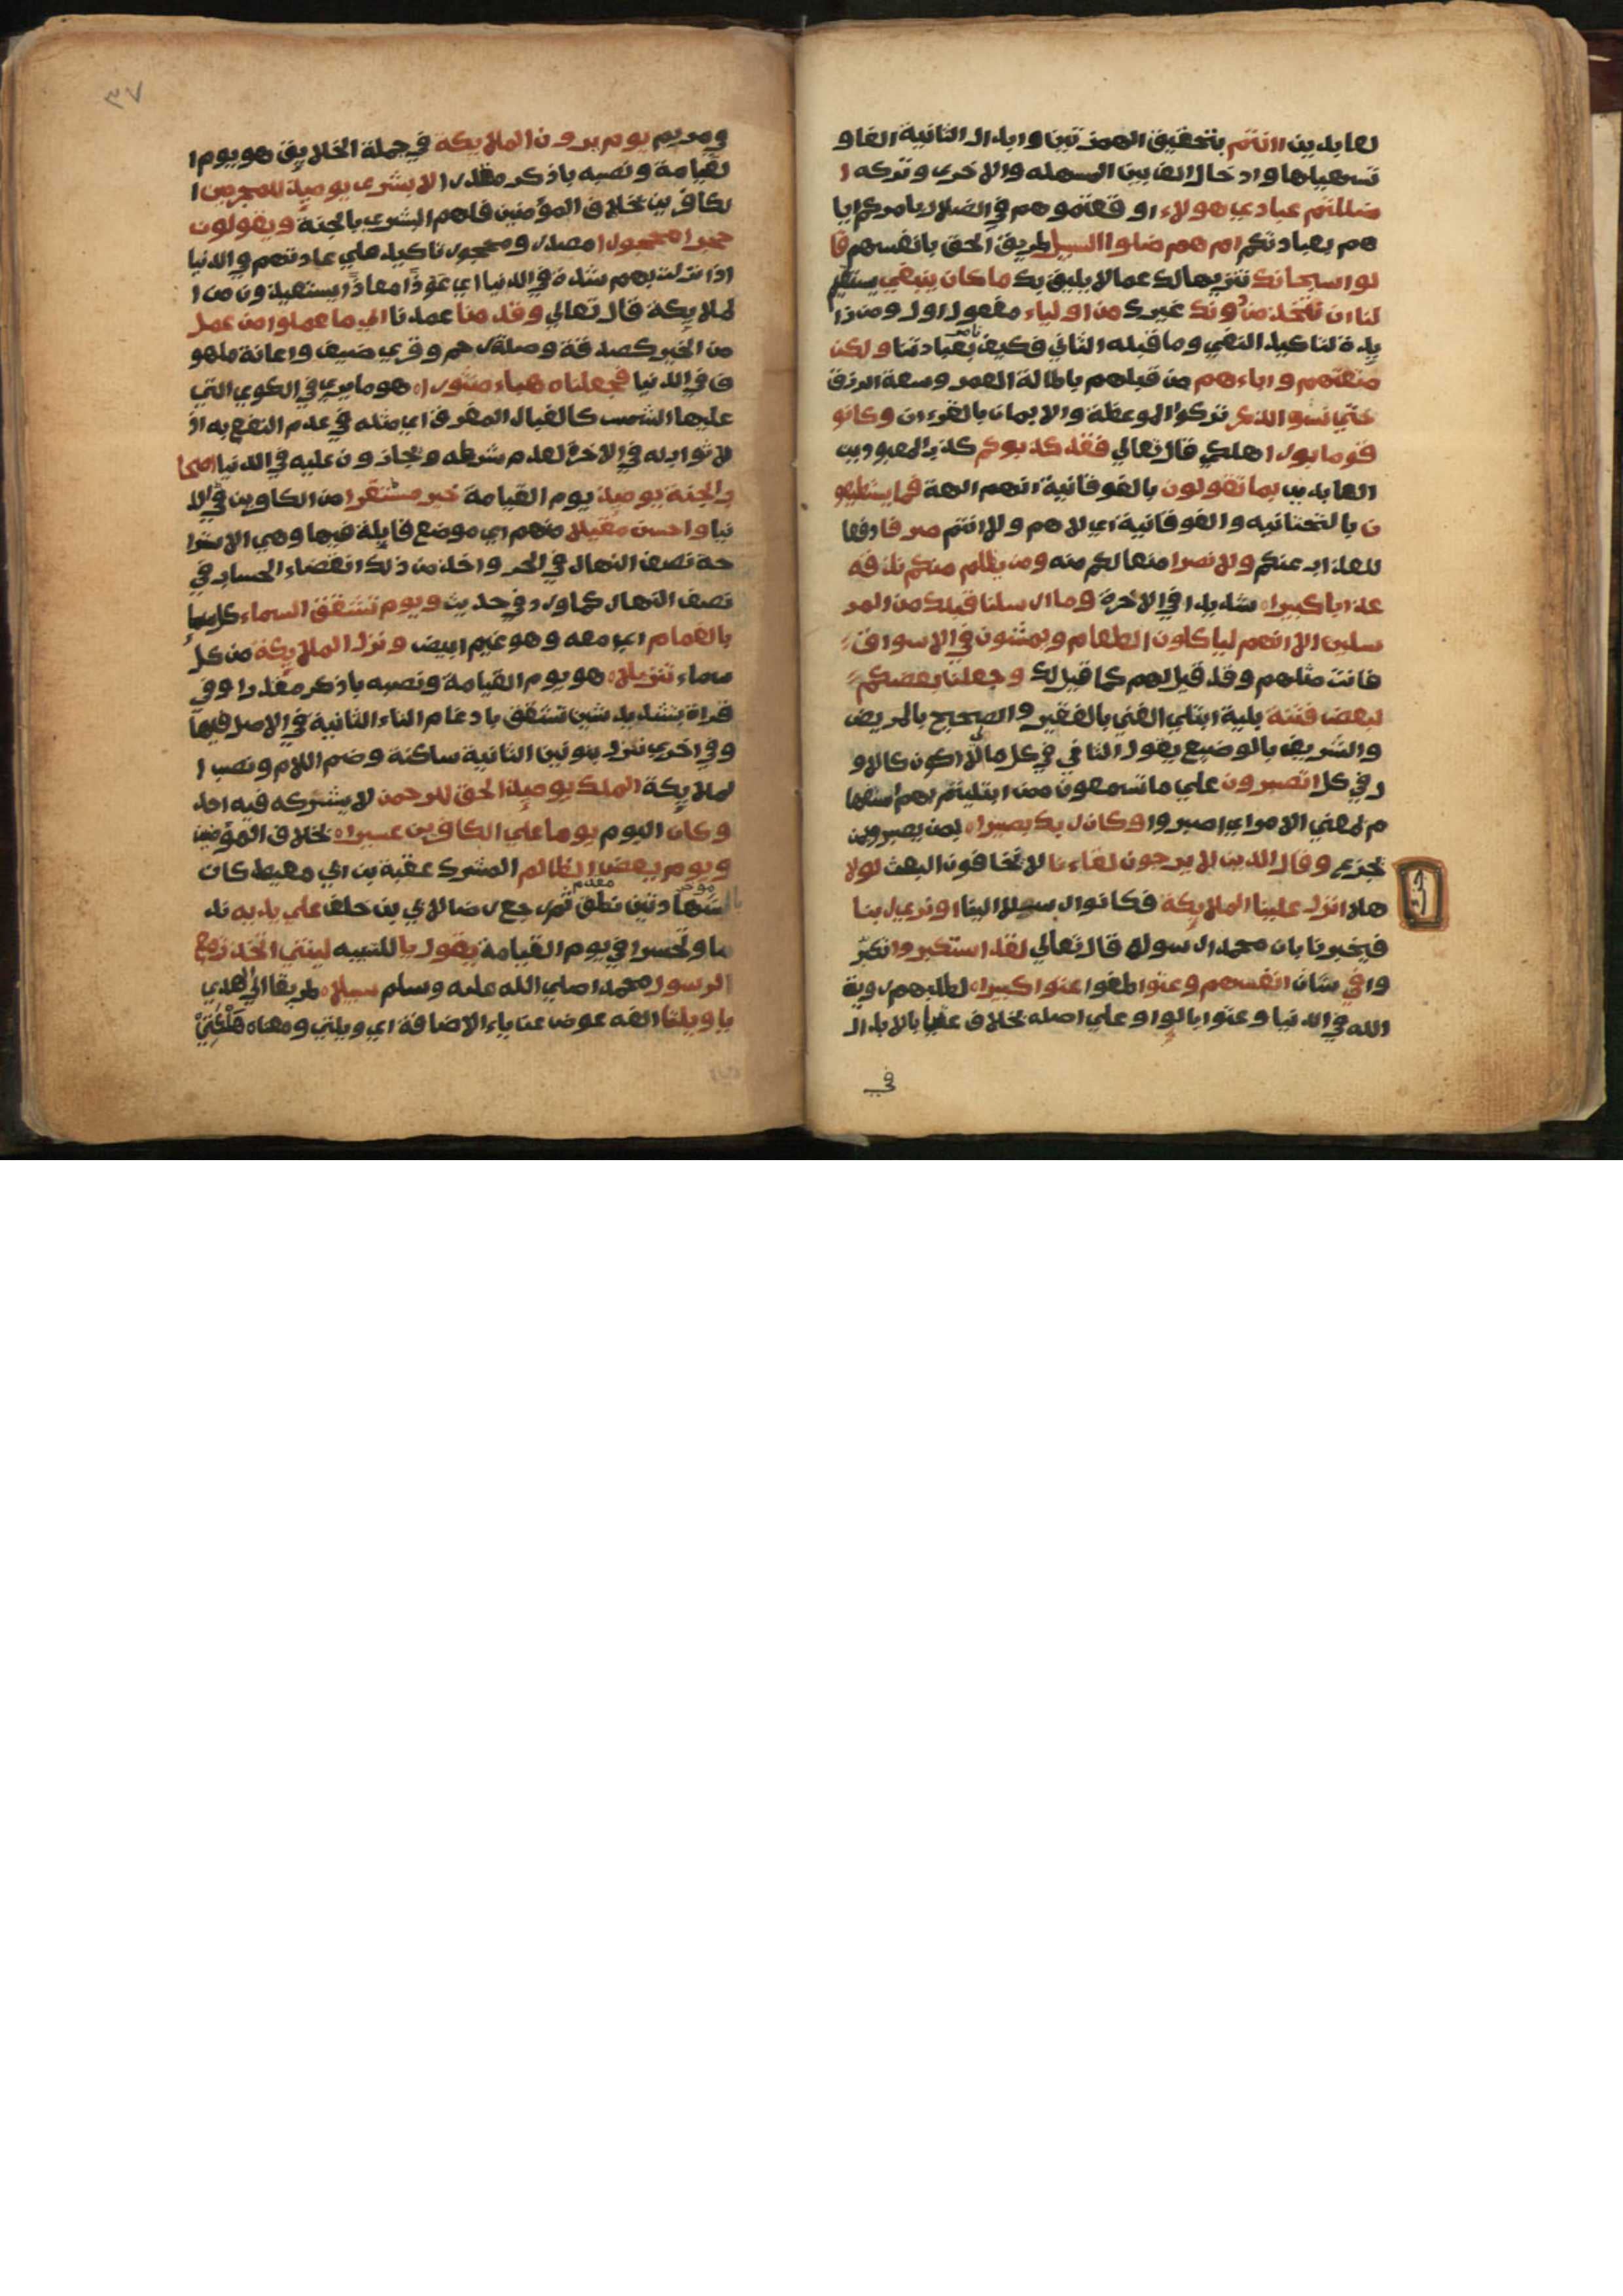 لعابدين اانتم بتحقيق الهمزتين وابدال الثانية الفا و
تسهيلها وادخال الف بين المسهله والاخري وتركه ا
ضللتم عبادي هولاء اوقعتموهم في الضلال بامركم ايا
هم بعبادتكم ام هم ضلوا السبيل طريق الحق بانفسهم قا
لوا سبحانك تنزيها لك عما لا يليق بك ما كان ينبغي يستقيم
لنا ان نتخذ من دونك غيرك من اولياء مفعول اول ومن زا
يدة لتاكيد النفي وما قبله الثاني فكيف نامر بعبادتنا ولكن
متعتهم واباءهم من قبلهم باطالة العمر وسعة الرزق
حتي نسو الذكر تركوا الموعظة والايمان بالقرءان وكانو
قوما بورا هلكي قال تعالي فقد كذبوكم كذب المعبودين
العابدين بما تقولون بالفوقانية انهم الهة فما يستطيعو
ن بالتحتانيه والفوقانية اي لا هم ولا انتم صرفا دفعا
للعذاب عنكم ولا نصرا منعا لكم منه ومن يظلم منكم نذقه
عذابا كبيرا شديدا في الاخرة وما ارسلنا قبلك من المر
سلين الا انهم لياكلون الطعام ويمشون في الاسواق
فانت مثلهم وقد قيل لهم كما قيل لك وجعلنا بعضكم
لبعض فتنة بلية ابتلي الغني بالفقير والصحيح بالمريض
والشريف بالوضيع يقول الثاني في كل مالي لا اكون كالاو
ل في كل اتصبرون علي ما تسمعون ممن ابتليتم بهم استفها
م بمعني الامر اي اصبروا وكان ربك بصيرا بمن يصبر ومن
يجزع وقال الذين لا يرجون لقاءنا لا يخافون البعث لولا
هلا انزل علينا الملايكة فكانوا رسلا الينا او نري ربنا
فيخبرنا بان محمدا رسوله قال تعالي لقد استكبروا تكبر
وا في شان انفسهم وعتوا طغوا عتوا كبيرا لطلبهم روية
الله في الدنيا وعتوا بالواو علي اصله بخلاف عتيا بالابدال
في
٣٧
ومريم يوم يرون الملايكة في جملة الخلايق هو يوم ا
لقيامة ونصبه باذكر مقدرا لا بشري يوميذ للمجرمين ا
لكافرين بخلاف المؤمنين فلهم البشري بالجنة ويقولون
حجرا محجورا مصدر ومحجور تاكيد علي عادتهم في الدنيا
اذا نزلت بهم شدة في الدنيا اي عوذا معاذا يستعيذون من ا
لملايكة قال تعالي وقدمنا عمدنا الي ما عملوا من عمل
من الخير كصدقة وصلة رحم وقري ضيف واعانة ملهو
ف في الدنيا فجعلناه هباء منثورا هو ما يري في الكوي التي
عليها الشمس كالغبار المفرق اي مثله في عدم النفع به اذ
لا ثواب له في الاخرة لعدم شرطه ويجازون عليه في الدنيا اصحا
ب الجنة يوميذ يوم القيامة خير مستقرا من الكافرين في الد
نيا واحسن مقيلا منهم اي موضع قايلة فيها وهي الاسترا
حة نصف النهار في الحر واخذ من ذلك انقضاء الحساب في
نصف النهار كما ورد في حديث ويوم تشقق السماء كل سما
بالغمام اي معه وهو غيم ابيض ونزل الملايكة من كل
سماء تنزيلا هو يوم القيامة ونصبه باذكر مقدرا وفي
قراة بتشديد شين تشقق بادغام التاء الثانية في الاصل فيها
وفي اخري ننزل بنونين الثانية ساكنة وضم اللام ونصب ا
لملايكة الملك يوميذ الحق للرحمن لا يشركه فيه احد
وكان اليوم يوما علي الكافرين عسيرا بخلاف المؤمنين
ويوم يعض الظالم المشرك عقبة بن ابي معيط كان
بالشهادتين نطق ثم رجع رضا لابي بن خلف علي يديه ند
ما وتحسرا في يوم القيامة يقول يا للتنبيه ليتني اتخذت مع
الرسول محمدا صلي الله عليه وسلم سبيلا طريقا الي الهدي
يا ويلتا الفه عوض عن ياء الاضافة اي ويلتي ومعناه هلكتي